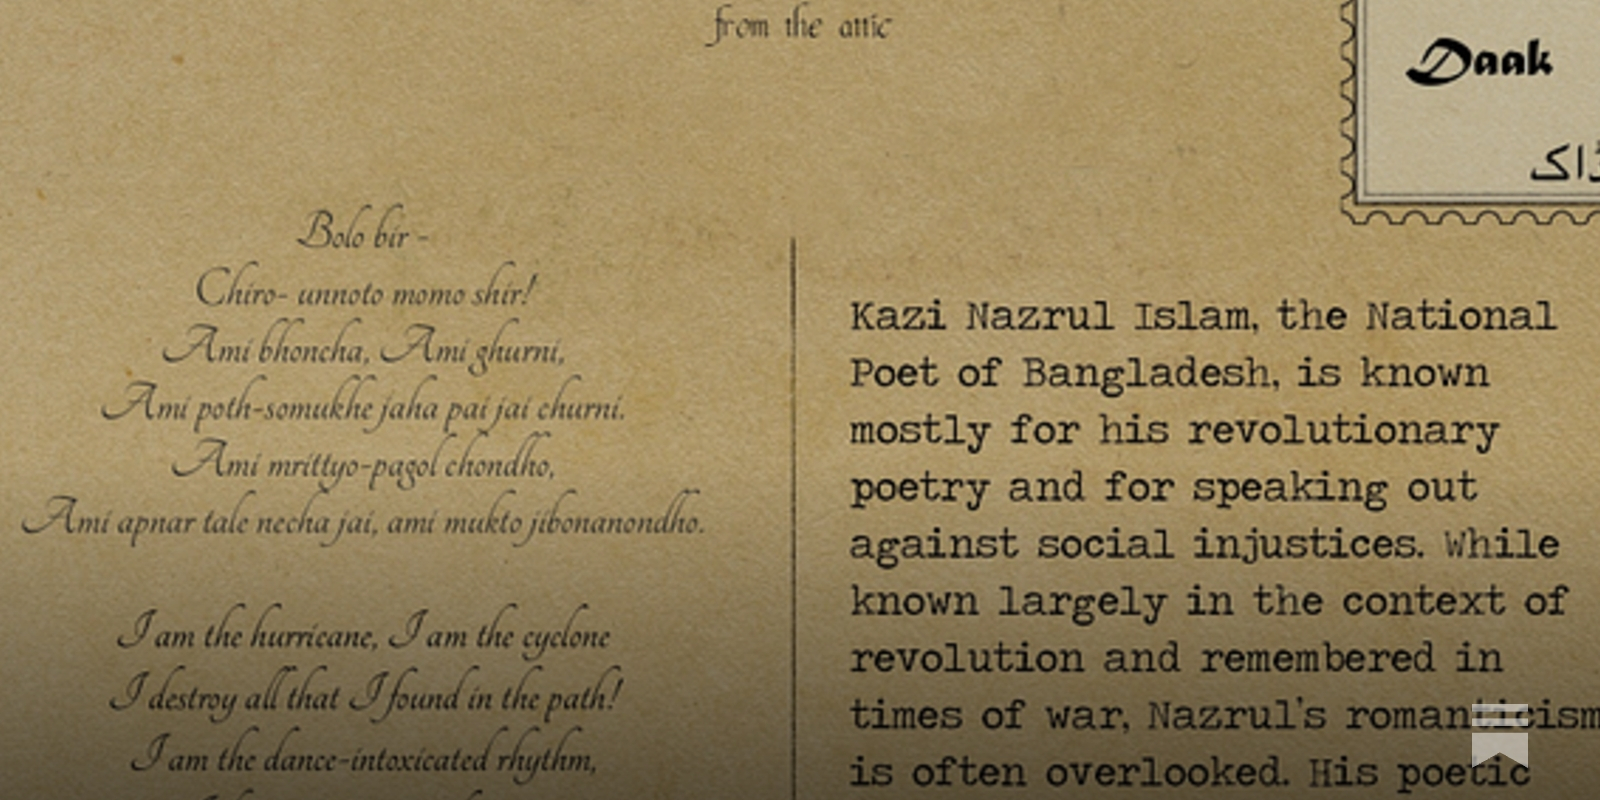 from the attic
Daak
ڈاک
Bolo bir -
Chiro- unnoto momo shir!
Ami bhoncha, Ami ghurni,
Ami poth-somukhe jaha pai jai churni.
Ami mrittyo-pagol chondho,
Ami apnar tale necha jai, ami mukto jibonanondho.
I am the hurricane, I am the cyclone
I destroy all that I found in the path!
I am the dance-intoxicated rhythm,
Kazi Nazrul Islam, the National
Poet of Bangladesh, is known
mostly for his revolutionary
poetry and for speaking out
against social injustices. While
known largely in the context of
revolution and remembered in
times of war, Nazrul's romanticism
is often overlooked. His poetic